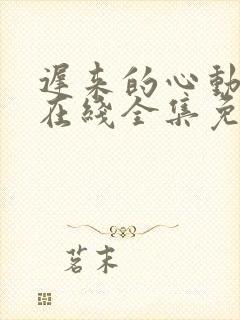 遲来的心動
在綫全集免
茗末